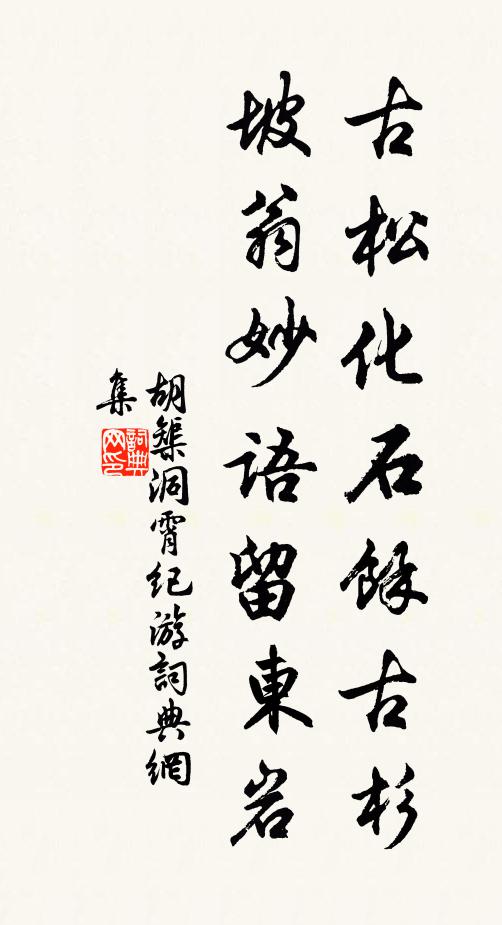 古松化石餘古杉
坡翁妙語留東岩
胡榘洞霄紀游詞典網
集
詞典
网印